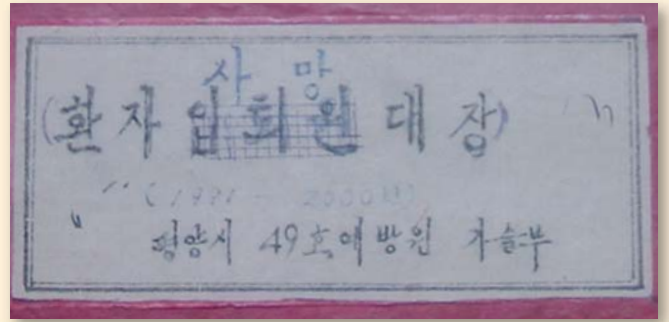 사망
(환자입퇴원대장)
(1991 - 2000년)
평양시 49호예방원 기술부